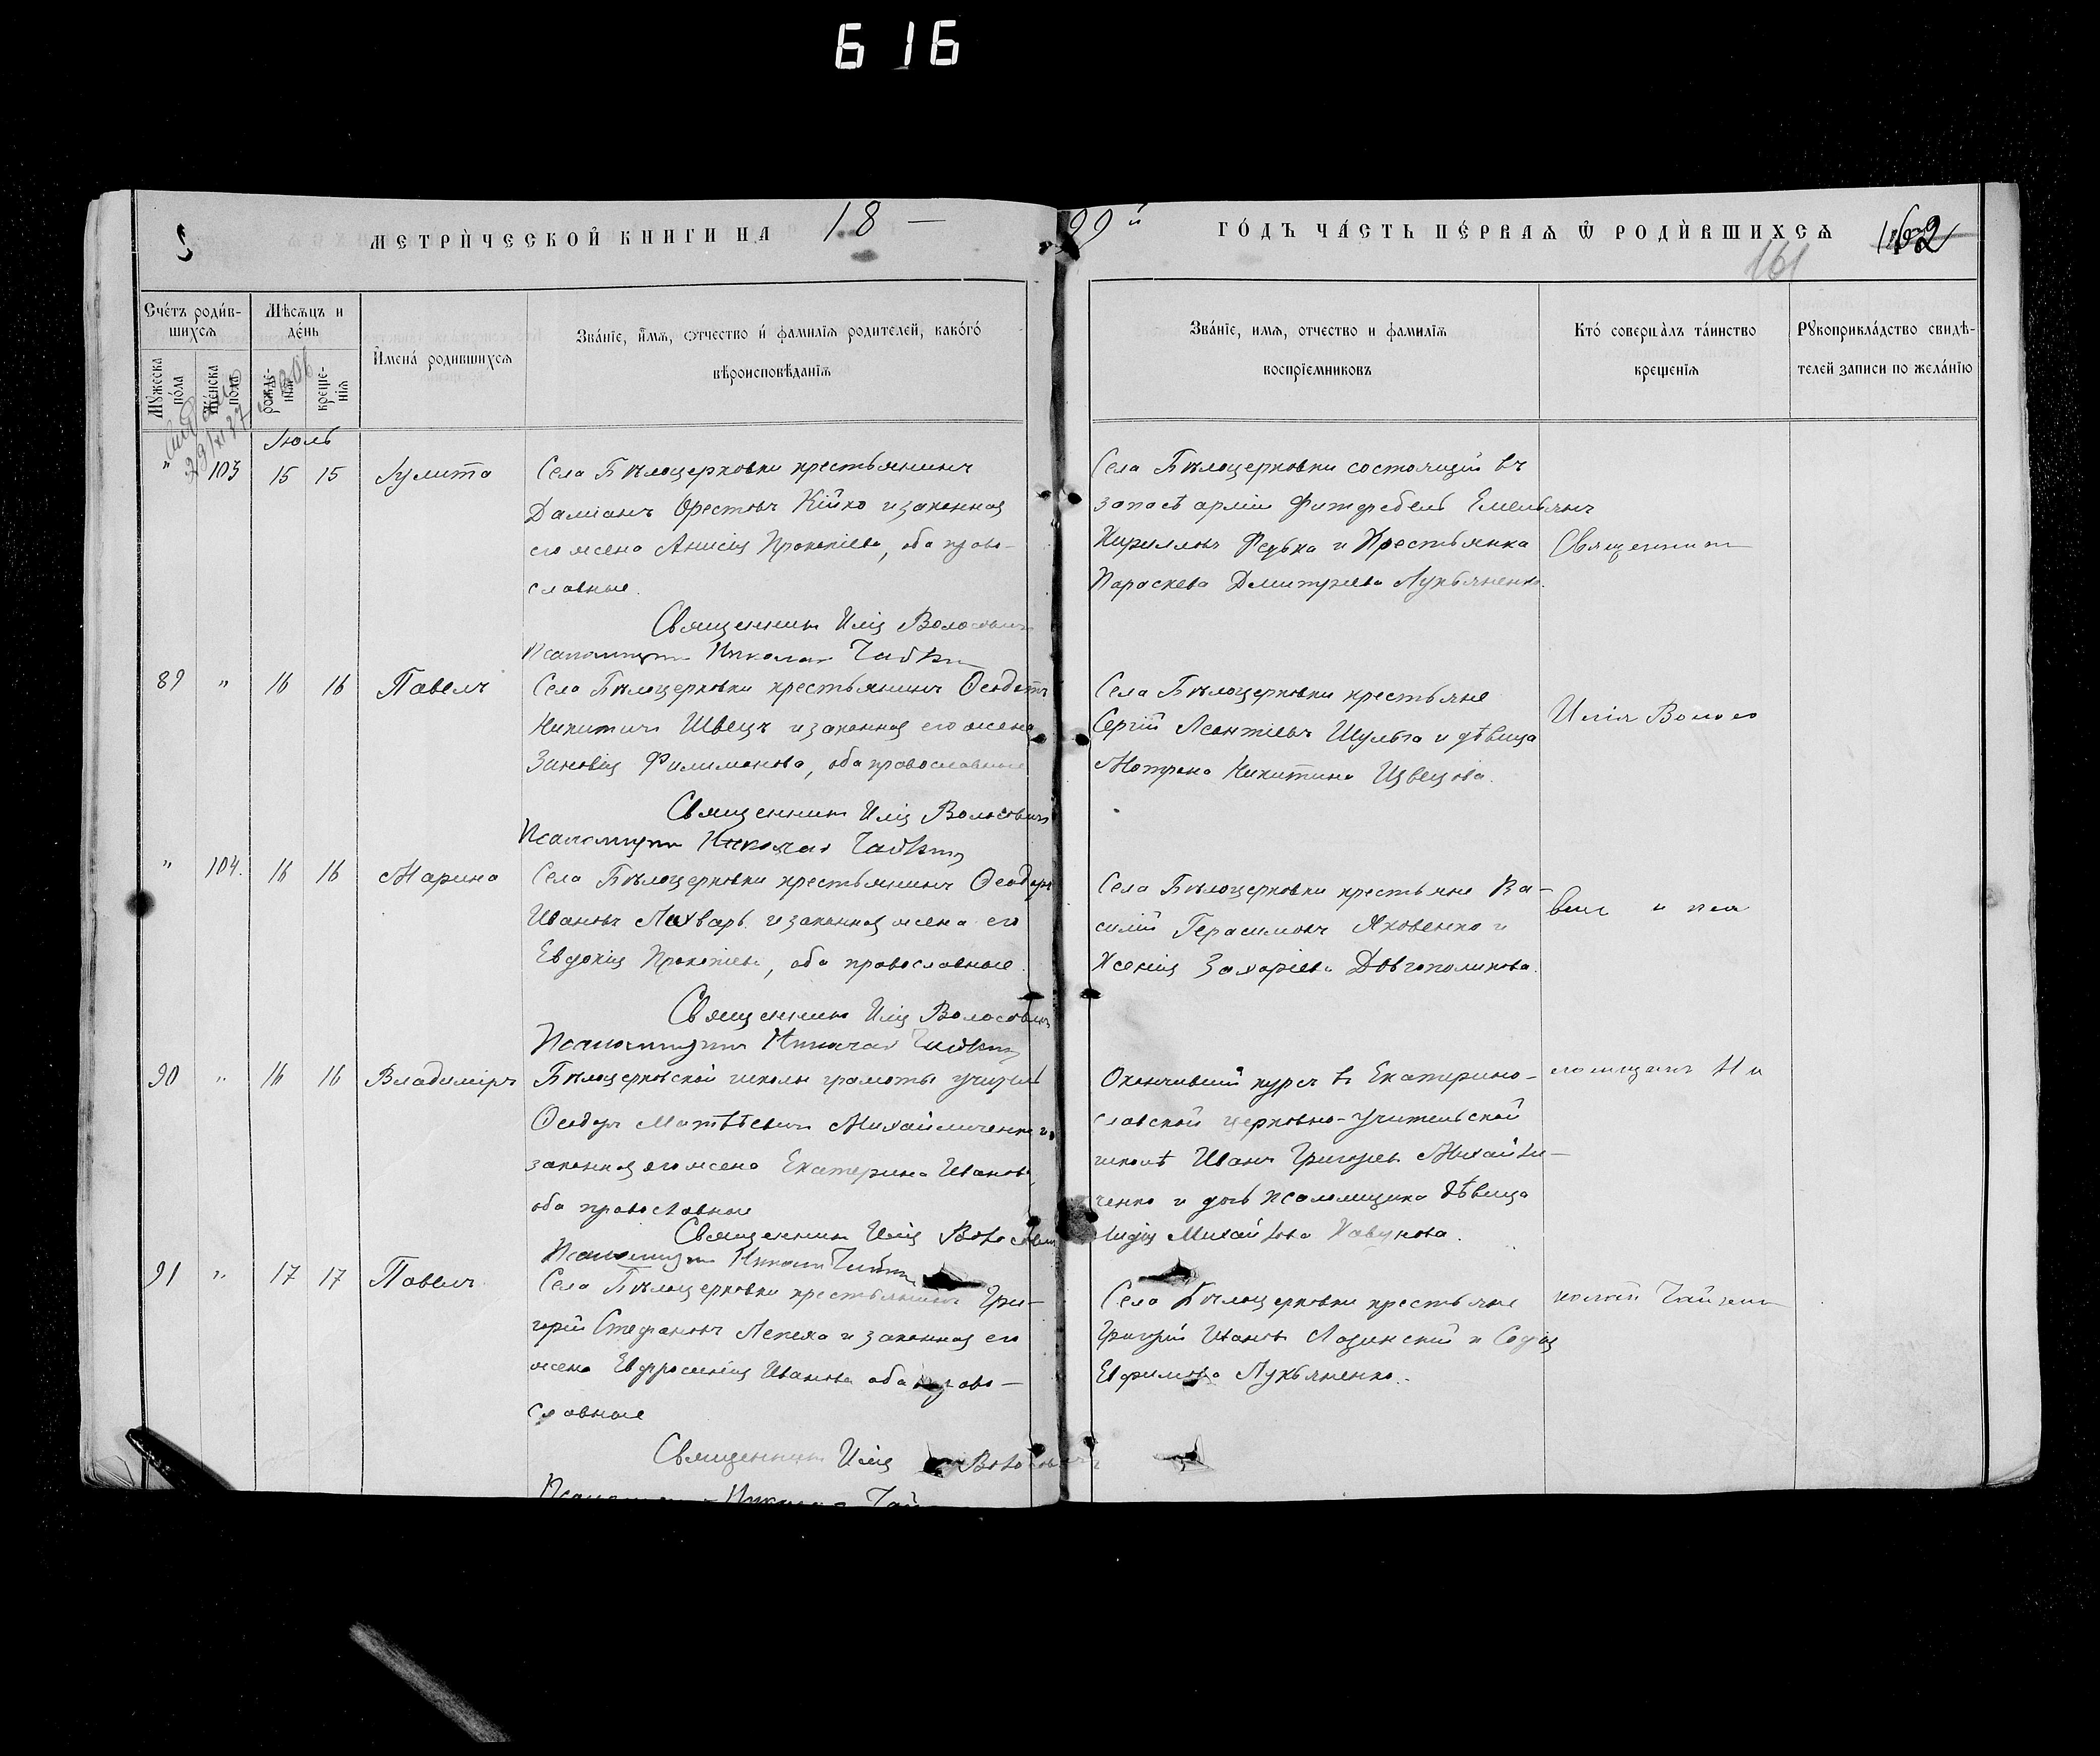 616
МЕТРИЧЕСКОЙ КНИГИ НА 18 — 99й ГОДЪ ЧАСТЬ ПЕРВАЯ Ѿ РОДИВШИХСЯ 162
161
Счетъ родив-
шихся
Мужеска пола
Женска пола
Мѣсяцъ и
день
рожде-
нія
креще-
нія
Имена родившихся
Званіе, имя, отчество и фамилія родителей, какого
вѣроисповѣданія
Званіе, имя, отчество и фамилія
воспріемниковъ
Кто совершалъ таинство
крещенія
Рукоприкладство свидѣ-
телей записи по желанію
Іюль
" 103 15 15 Іулита
Села Бѣлоцерковки крестьянинъ
Даміанъ Орестовъ Кійко и законная
его жена Анисія Прокопіева, оба право-
славные.
Священникъ Илія Волосовичъ
Псаломщикъ Николай
Села Бѣлоцерковки состоящій въ
запасѣ арміи Фитфебель Емельянъ
Кирилловъ Редька и Крестьянка
Параскева Дмитріева Лукьяненко.
Священникъ
89 " 16 16 Павелъ
Села Бѣлоцерковки крестьянинъ Ѳеодотъ
Никитинъ Швецъ и законная его жена
Зиновія Филимонова, оба православные
Священникъ Илія Волосовичъ
Псаломщикъ Николай
Села Бѣлоцерковки крестьяне
Сергій Леонтіевъ Шульга и дѣвица
Мотрона Никитина Швецова.
Илія Волосо
" 104. 16 16 Марина
Села Бѣлоцерковки крестьянинъ Ѳеодоръ
Ивановъ Лихварь и законная жена его
Евдокія Прокопіева, оба православные.
Священникъ Илія Волосовичъ
Псаломщикъ Николай
Села Бѣлоцерковки крестьяне Ва-
силій Герасимовъ Яковенко и
Ксенія Захаріева Довгополикова.
вичъ и пса
90 " 16 16 Владиміръ
Бѣлоцерковской школы грамоты учитель
Ѳеодоръ Матѳѣевичъ Михайличенко и
законная его жена Екатерина Иванова,
оба православные
Священникъ Илія Волосовичъ
Псаломщикъ Николай
Окончившій курсъ въ Екатерино-
славской церковно-учительской
школѣ Иванъ Григорьевъ Михайли-
ченко и дочь псаломщика дѣвица
Лидія Михайлова Кавунова.
ломщикъ Ни
91 " 17 17 Павелъ
Села Бѣлоцерковки крестьянинъ Гри-
горій Стефановъ Лепеха и законная его
жена Евфросинія Иванова оба право-
славные
Священникъ Илія Волосовичъ
Села Бѣлоцерковки крестьяне
Григорій Ивановъ Лазинскій и Софія
Ефимова Лукьяненко.
колай